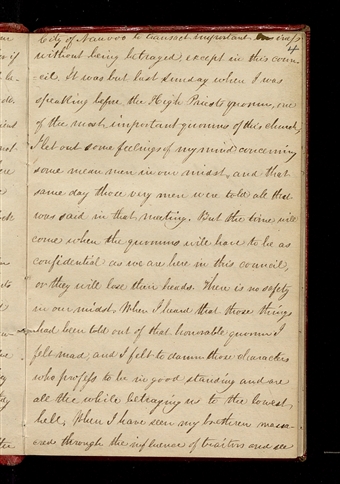 City of Nauvoo to transact important business
4
without being betrayed, except in this coun-
cil. It was but last Sunday when I was
speaking before the High Priests quorum, one
of the most important quorums of this church,
I let out some feelings of my mind concerning
some mean men in our midst, and that
same day those very men were told all that
was said in that meeting. But the time will
come when the quorums will have to be as
confidential as we are here in this council,
or they will lose their heads. There is no safety
in our midst. When I heard that those things
had been told out of that honorable quorum I
felt mad, and I felt to damn those characters
who profess to be in good standing and are
all the while betraying us to the lowest
hell. When I have seen my brethren massa-
cred through the influence of traitors and see